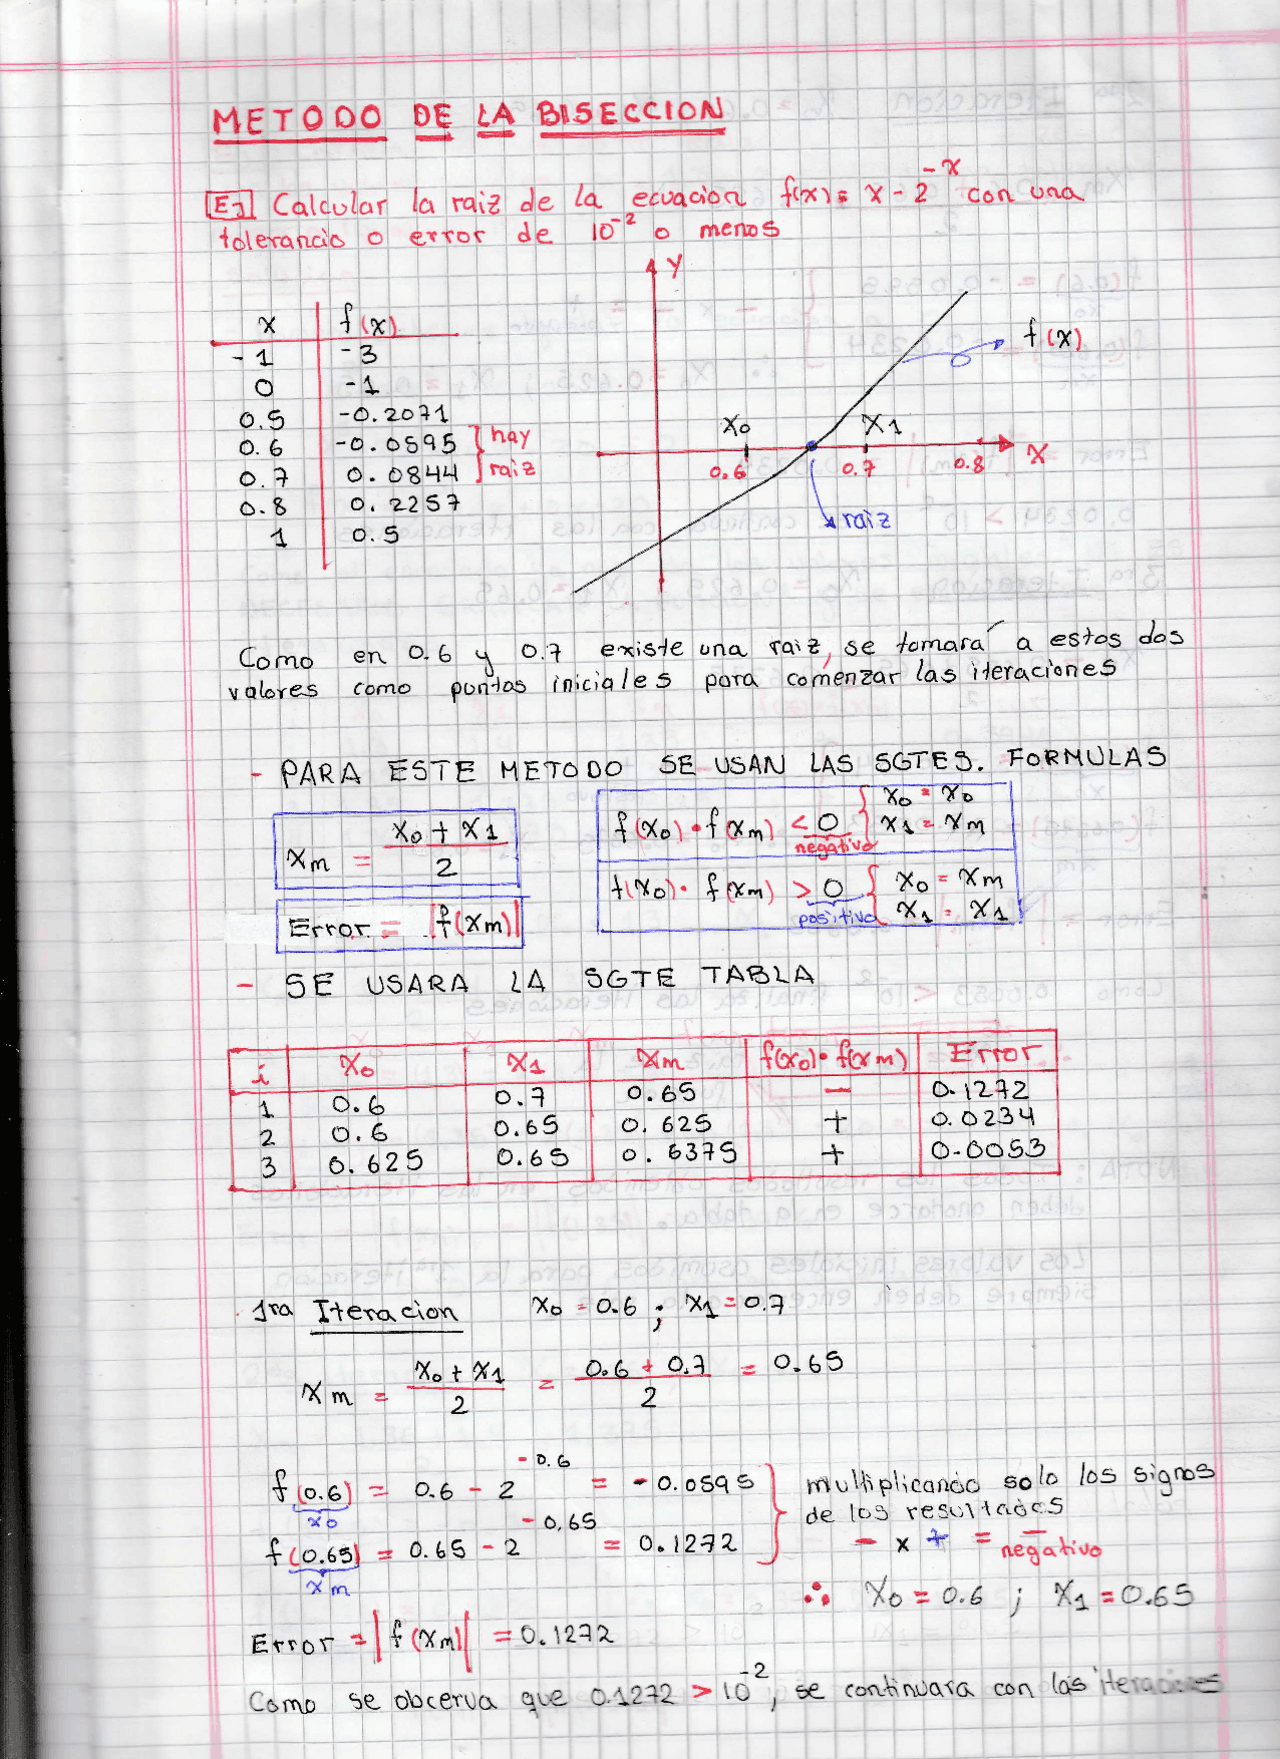 METODO DE LA BISECCION
EJ Calcular la raiz de la ecuacion f(x) = x - 2^-x con una
tolerancia o error de 10^-2 o menos
x f(x)
-1 -3
0 -1
0.5 -0.2071
0.6 -0.0595 } hay
0.7 0.0844 } raiz
0.8 0.2257
1 0.5
Y
f(x)
X0 X1
0.6 0.7 0.8 X
raiz
Como en 0.6 y 0.7 existe una raiz, se tomará a estos dos
valores como puntos iniciales para comenzar las iteraciones
- PARA ESTE METODO SE USAN LAS SGTES. FORMULAS
Xm = (X0 + X1) / 2
Error = |f(Xm)|
f(X0) • f(Xm) < 0 { X0 = X0
negativo X1 = Xm
f(X0) • f(Xm) > 0 { X0 = Xm
positivo X1 = X1
- SE USARA LA SGTE TABLA
i X0 X1 Xm f(x0) • f(xm) Error
1 0.6 0.7 0.65 - 0.1272
2 0.6 0.65 0.625 + 0.0234
3 0.625 0.65 0.6375 + 0.0053
1ra Iteracion X0 = 0.6 ; X1 = 0.7
Xm = (X0 + X1) / 2 = (0.6 + 0.7) / 2 = 0.65
f(0.6) = 0.6 - 2^-0.6 = -0.0595 } multiplicando solo los signos
x0 de los resultados
f(0.65) = 0.65 - 2^-0.65 = 0.1272 - x + = - negativo
xm
∴ X0 = 0.6 ; X1 = 0.65
Error = |f(Xm)| = 0.1272
Como se obcerva que 0.1272 > 10^-2, se continuara con las iteraciones